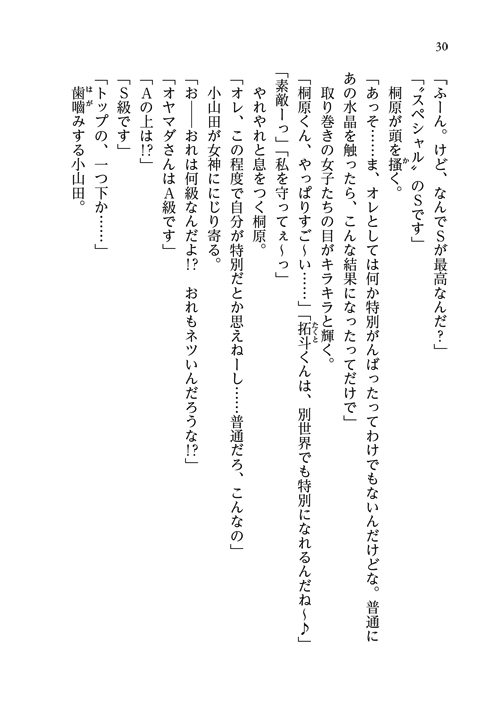 30
「ふーん。けど、なんでSが最高なんだ?」
「〝スペシャル〟のSです」
桐原が頭を掻く。
「あっそ……ま、オレとしては何か特別がんばったってわけでもないんだけどな。普通に
あの水晶を触ったら、こんな結果になったってだけで」
取り巻きの女子たちの目がキラキラと輝く。
「桐原くん、やっぱりすご〜い……」「拓斗くんは、別世界でも特別になれるんだね〜♪」
「素敵ーっ」「私を守ってぇ〜っ」
やれやれと息をつく桐原。
「オレ、この程度で自分が特別だとか思えねーし……普通だろ、こんなの」
小山田が女神ににじり寄る。
「お――おれは何級なんだよ!? おれもネツいんだろうな!?」
「オヤマダさんはA級です」
「Aの上は!?」
「S級です」
「トップの、一つ下か……」
歯噛みする小山田。